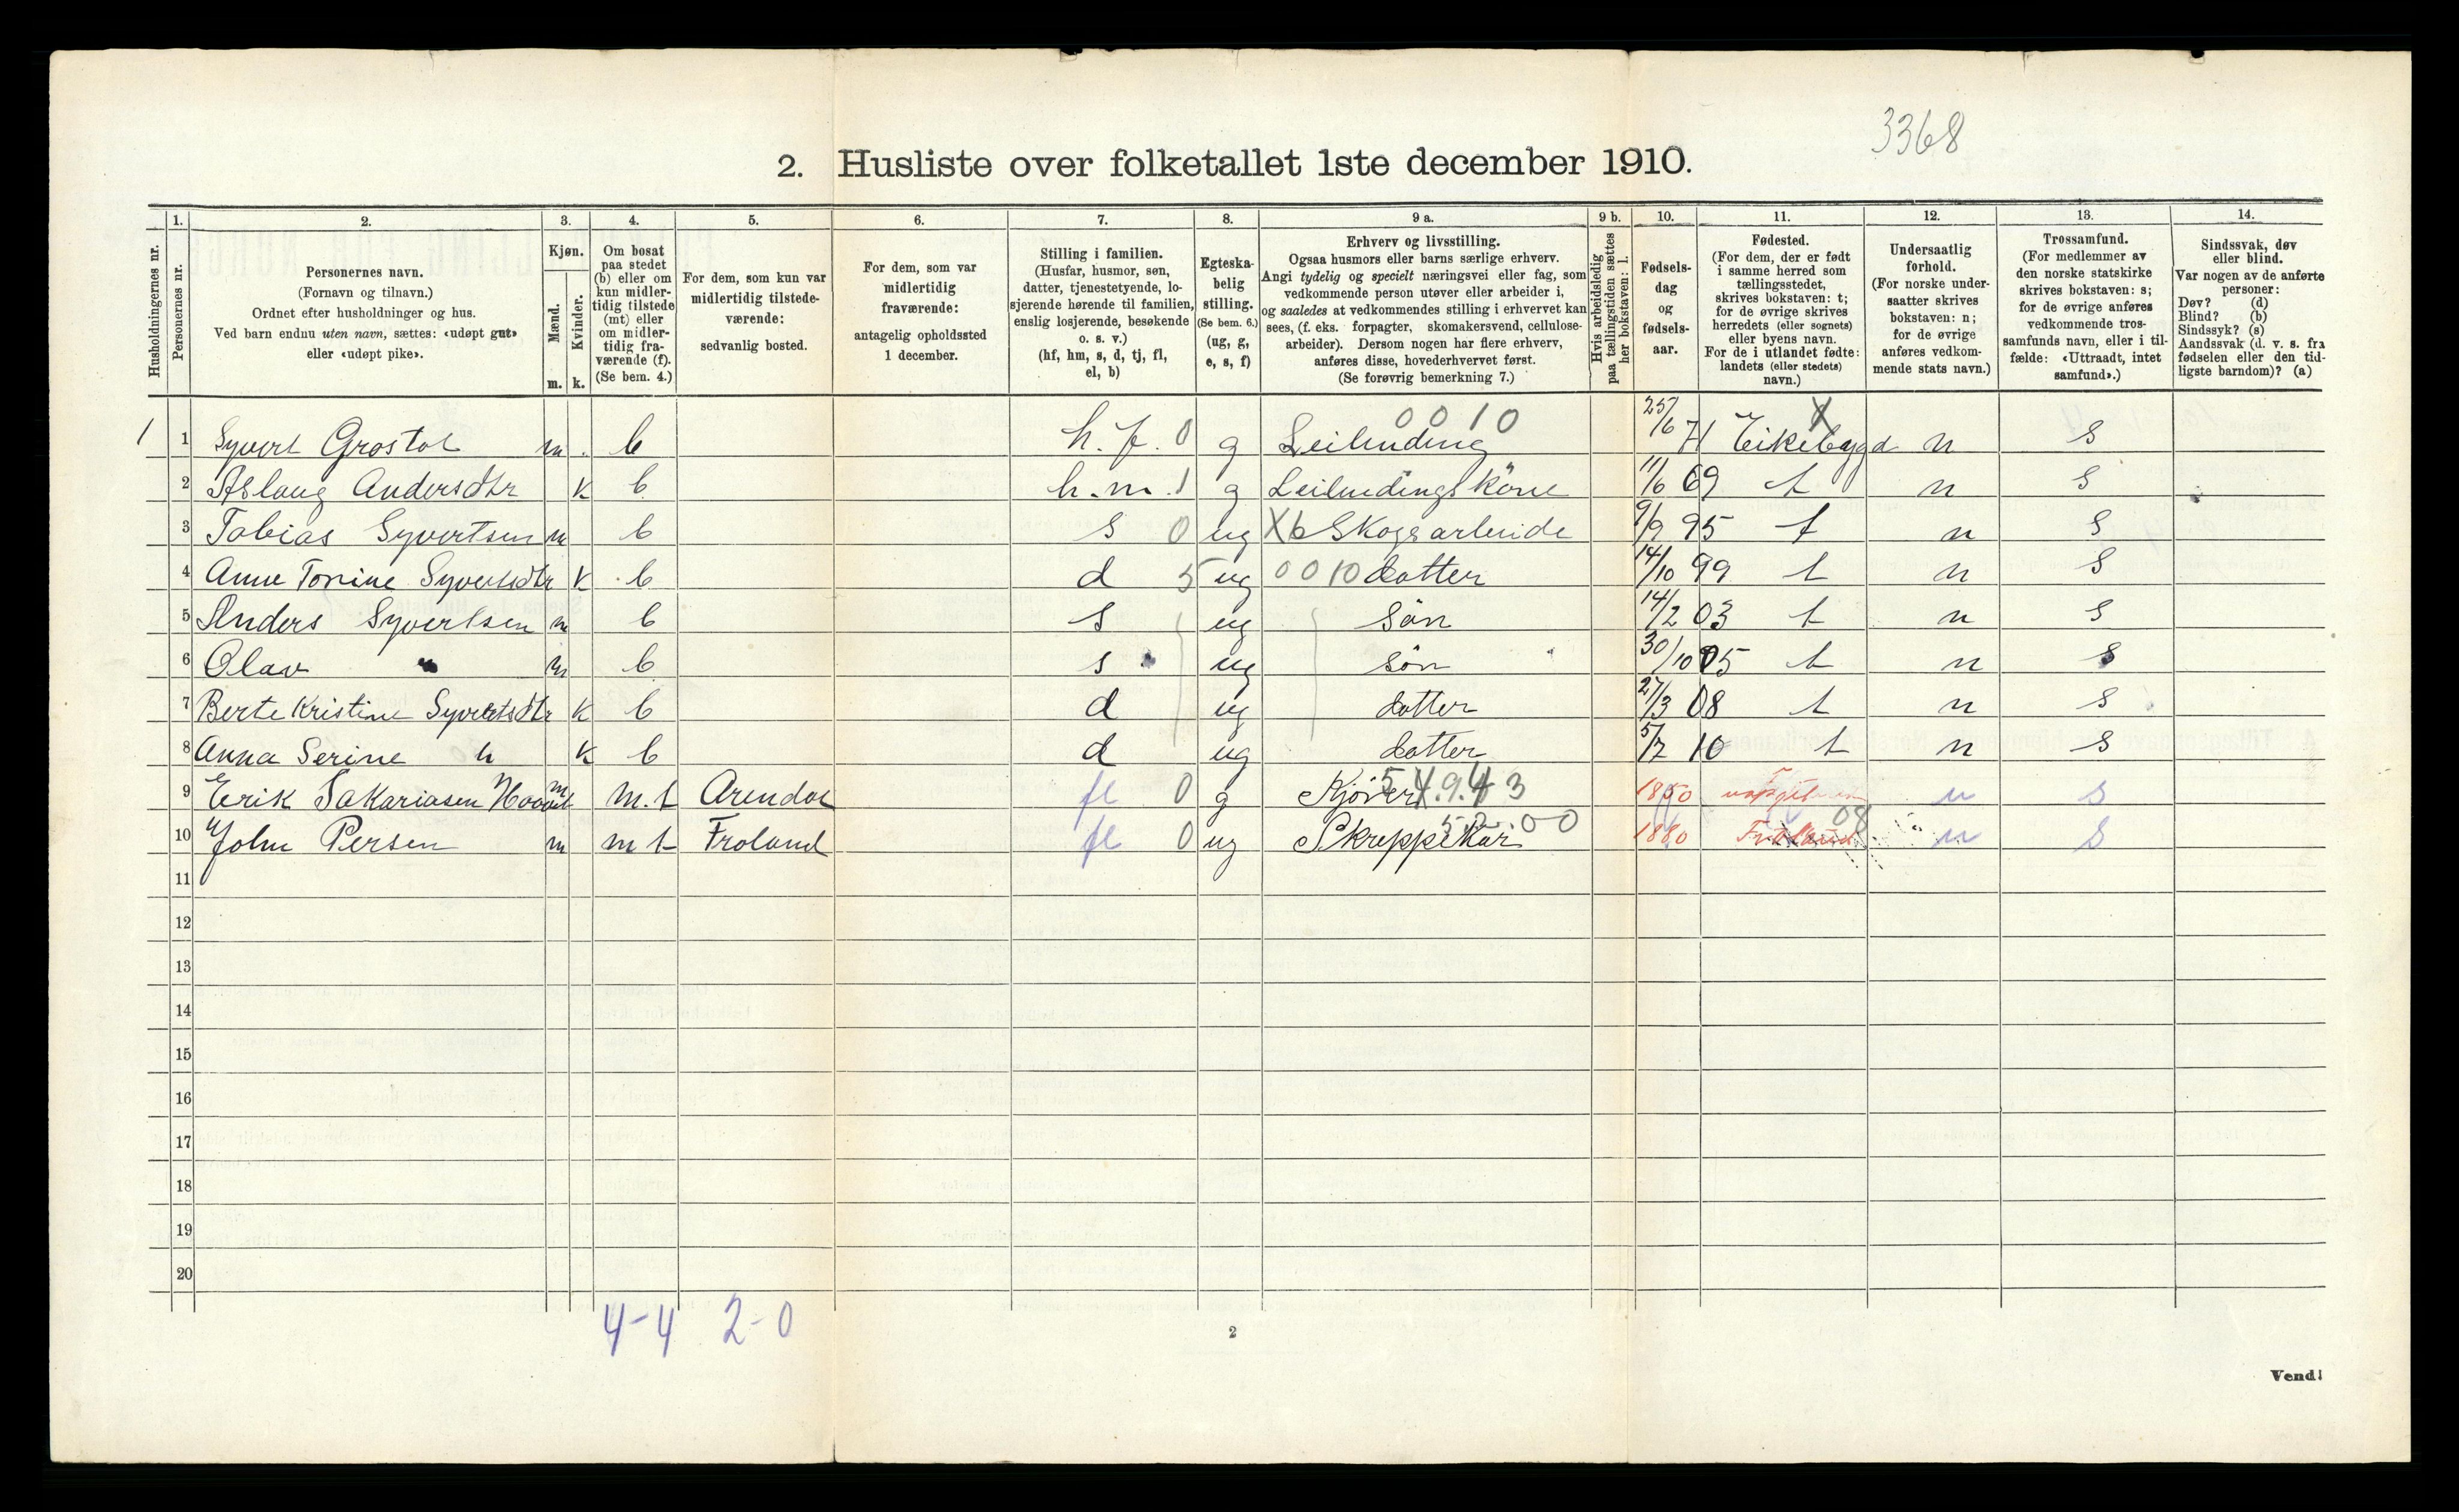 3368
2. Husliste over folketallet 1ste december 1910.
Husholdningernes nr.
1.
Personernes nr.
2.
Personernes navn.
(Fornavn og tilnavn.)
Ordnet efter husholdninger og hus.
Ved barn endnu uten navn, sættes: «udøpt gut»
eller «udøpt pike».
3.
Kjøn.
Mænd.
Kvinder.
m. k.
4.
Om bosat
paa stedet
(b) eller om
kun midler-
tidig tilstede
(mt) eller
om midler-
tidig fra-
værende (f).
(Se bem. 4.)
5.
For dem, som kun var
midlertidig tilstede-
værende:
sedvanlig bosted.
6.
For dem, som var
midlertidig
fraværende:
antagelig opholdssted
1 december.
7.
Stilling i familien.
(Husfar, husmor, søn,
datter, tjenestetyende, lo-
sjerende hørende til familien,
enslig losjerende, besøkende
o. s. v.)
(hf, hm, s, d, tj, fl,
el, b)
8.
Egteska-
belig
stilling.
(Se bem. 6.)
(ug, g,
e, s, f)
9 a.
Erhverv og livsstilling.
Ogsaa husmors eller barns særlige erhverv.
Angi tydelig og specielt næringsvei eller fag, som
vedkommende person utøver eller arbeider i,
og saaledes at vedkommendes stilling i erhvervet kan
sees, (f. eks. forpagter, skomakersvend, cellulose-
arbeider). Dersom nogen har flere erhverv,
anføres disse, hovederhvervet først.
(Se forøvrig bemerkning 7.)
9 b.
Hvis arbeidsledig
paa tællingstiden sættes
her bokstaven: l.
10.
Fødsels-
dag
og
fødsels-
aar.
11.
Fødested.
(For dem, der er født
i samme herred som
tællingsstedet,
skrives bokstaven: t;
for de øvrige skrives
herredets (eller sognets)
eller byens navn.
For de i utlandet fødte:
landets (eller stedets)
navn.)
12.
Undersaatlig
forhold.
(For norske under-
saatter skrives
bokstaven: n;
for de øvrige
anføres vedkom-
mende stats navn.)
13.
Trossamfund.
(For medlemmer av
den norske statskirke
skrives bokstaven: s;
for de øvrige anføres
vedkommende tros-
samfunds navn, eller i til-
fælde: «Uttraadt, intet
samfund».)
14.
Sindssvak, døv
eller blind.
Var nogen av de anførte
personer:
Døv? (d)
Blind? (b)
Sindssyk? (s)
Aandssvak (d. v. s. fra
fødselen eller den tid-
ligste barndom)? (a)
1 1 Syvert Grostøl m. b h. f. 0 g Leilending 0010 25/6 71 Eikebygd n s
2 Aslaug Andersdtr k b h.m. 1 g Leilendingskone 11/6 69 t n s
3 Tobias Syvertsen m b s 0 ug Xb Skogsarbeide 9/9 95 t n s
4 Anne Tonine Syvertsdtr k b d 5 ug 0010 datter 14/10 99 t n s
5 Anders Syvertsen m b s ug Søn 14/2 03 t n s
6 Olav " m b s ug søn 30/10 05 t n s
7 Berte Kristine Syvertsdtr k b d ug datter 27/3 08 t n s
8 Anna Serine " k b d ug datter 5/7 10 t n s
9 Erik Sakariasen m m.t Arendal fl 0 g 1850 n s
10 John Persen m mt Froland fl 0 ug Skreppekar 52.00 1880 08 n s
11
12
13
14
15
16
17
18
19
20
4-4 2-0
2
Vend!